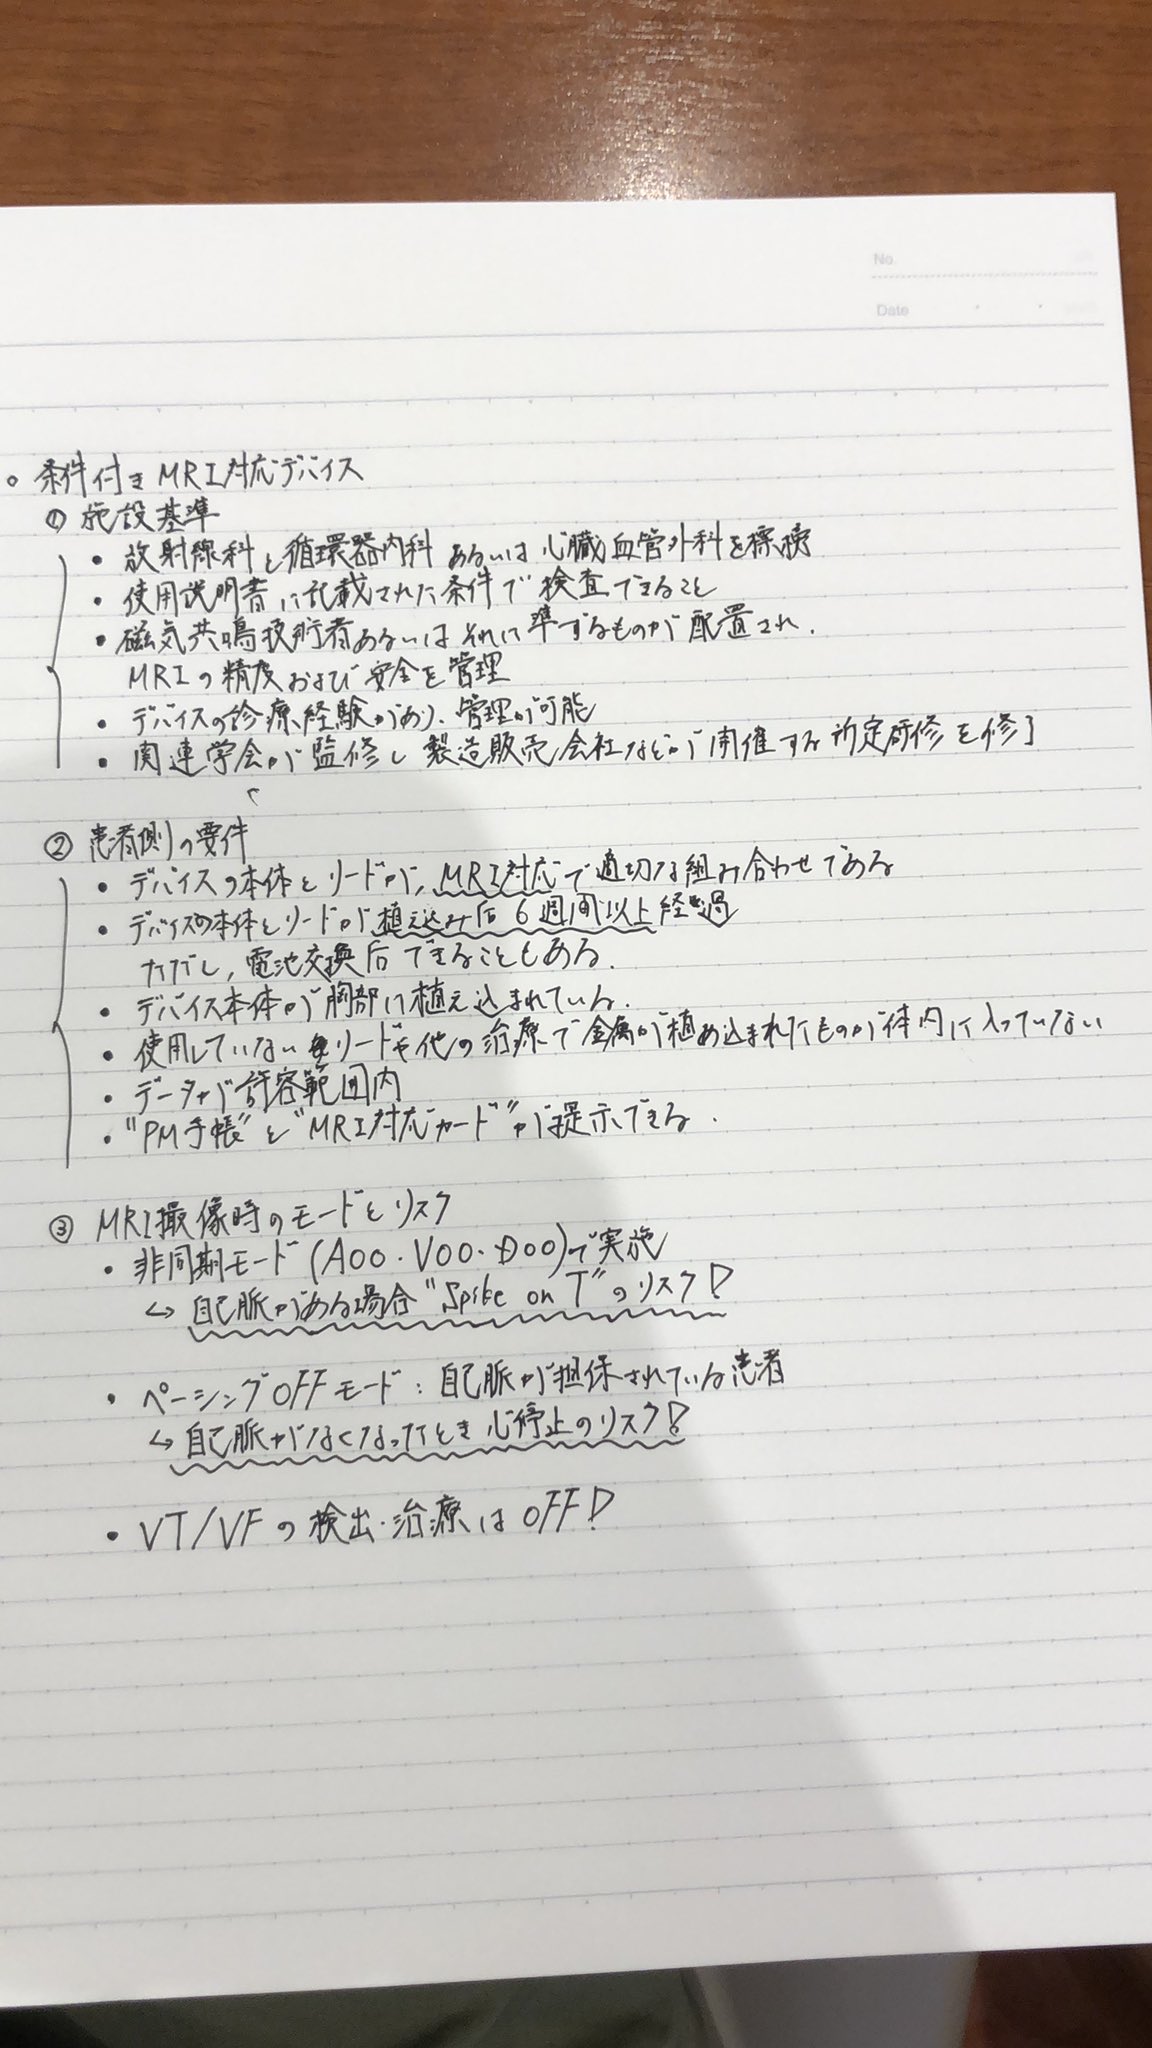 No.
Date
○ 条件付きMRI対応デバイス
① 施設基準
・放射線科と循環器内科 あるいは 心臓血管外科を標榜
・使用説明書に記載された条件で検査できること
・磁気共鳴技術者あるいはそれに準ずるものが配置され、
MRIの精度および安全を管理
・デバイスの診療経験があり、管理が可能
・関連学会が監修し 製造販売会社などが開催する所定研修を修了
② 患者側の要件
・デバイスの本体とリードが、MRI対応で適切な組み合わせである
・デバイスの本体とリードが植え込み后6週間以上経過
ただし、電池交換后できることもある.
・デバイス本体が胸部に植え込まれている.
・使用していないリードや他の治療で金属が植め込まれたものが体内に入っていない
・データが許容範囲内
・"PM手帳"と"MRI対応カード"が提示できる.
③ MRI撮像時のモードとリスク
・非同期モード(AOO・VOO・DOO)で実施
↪ 自己脈がある場合"Spike on T"のリスク!
・ペーシングOFFモード:自己脈が担保されている患者
↪ 自己脈がなくなったとき心停止のリスク!
・VT/VFの検出・治療はOFF!